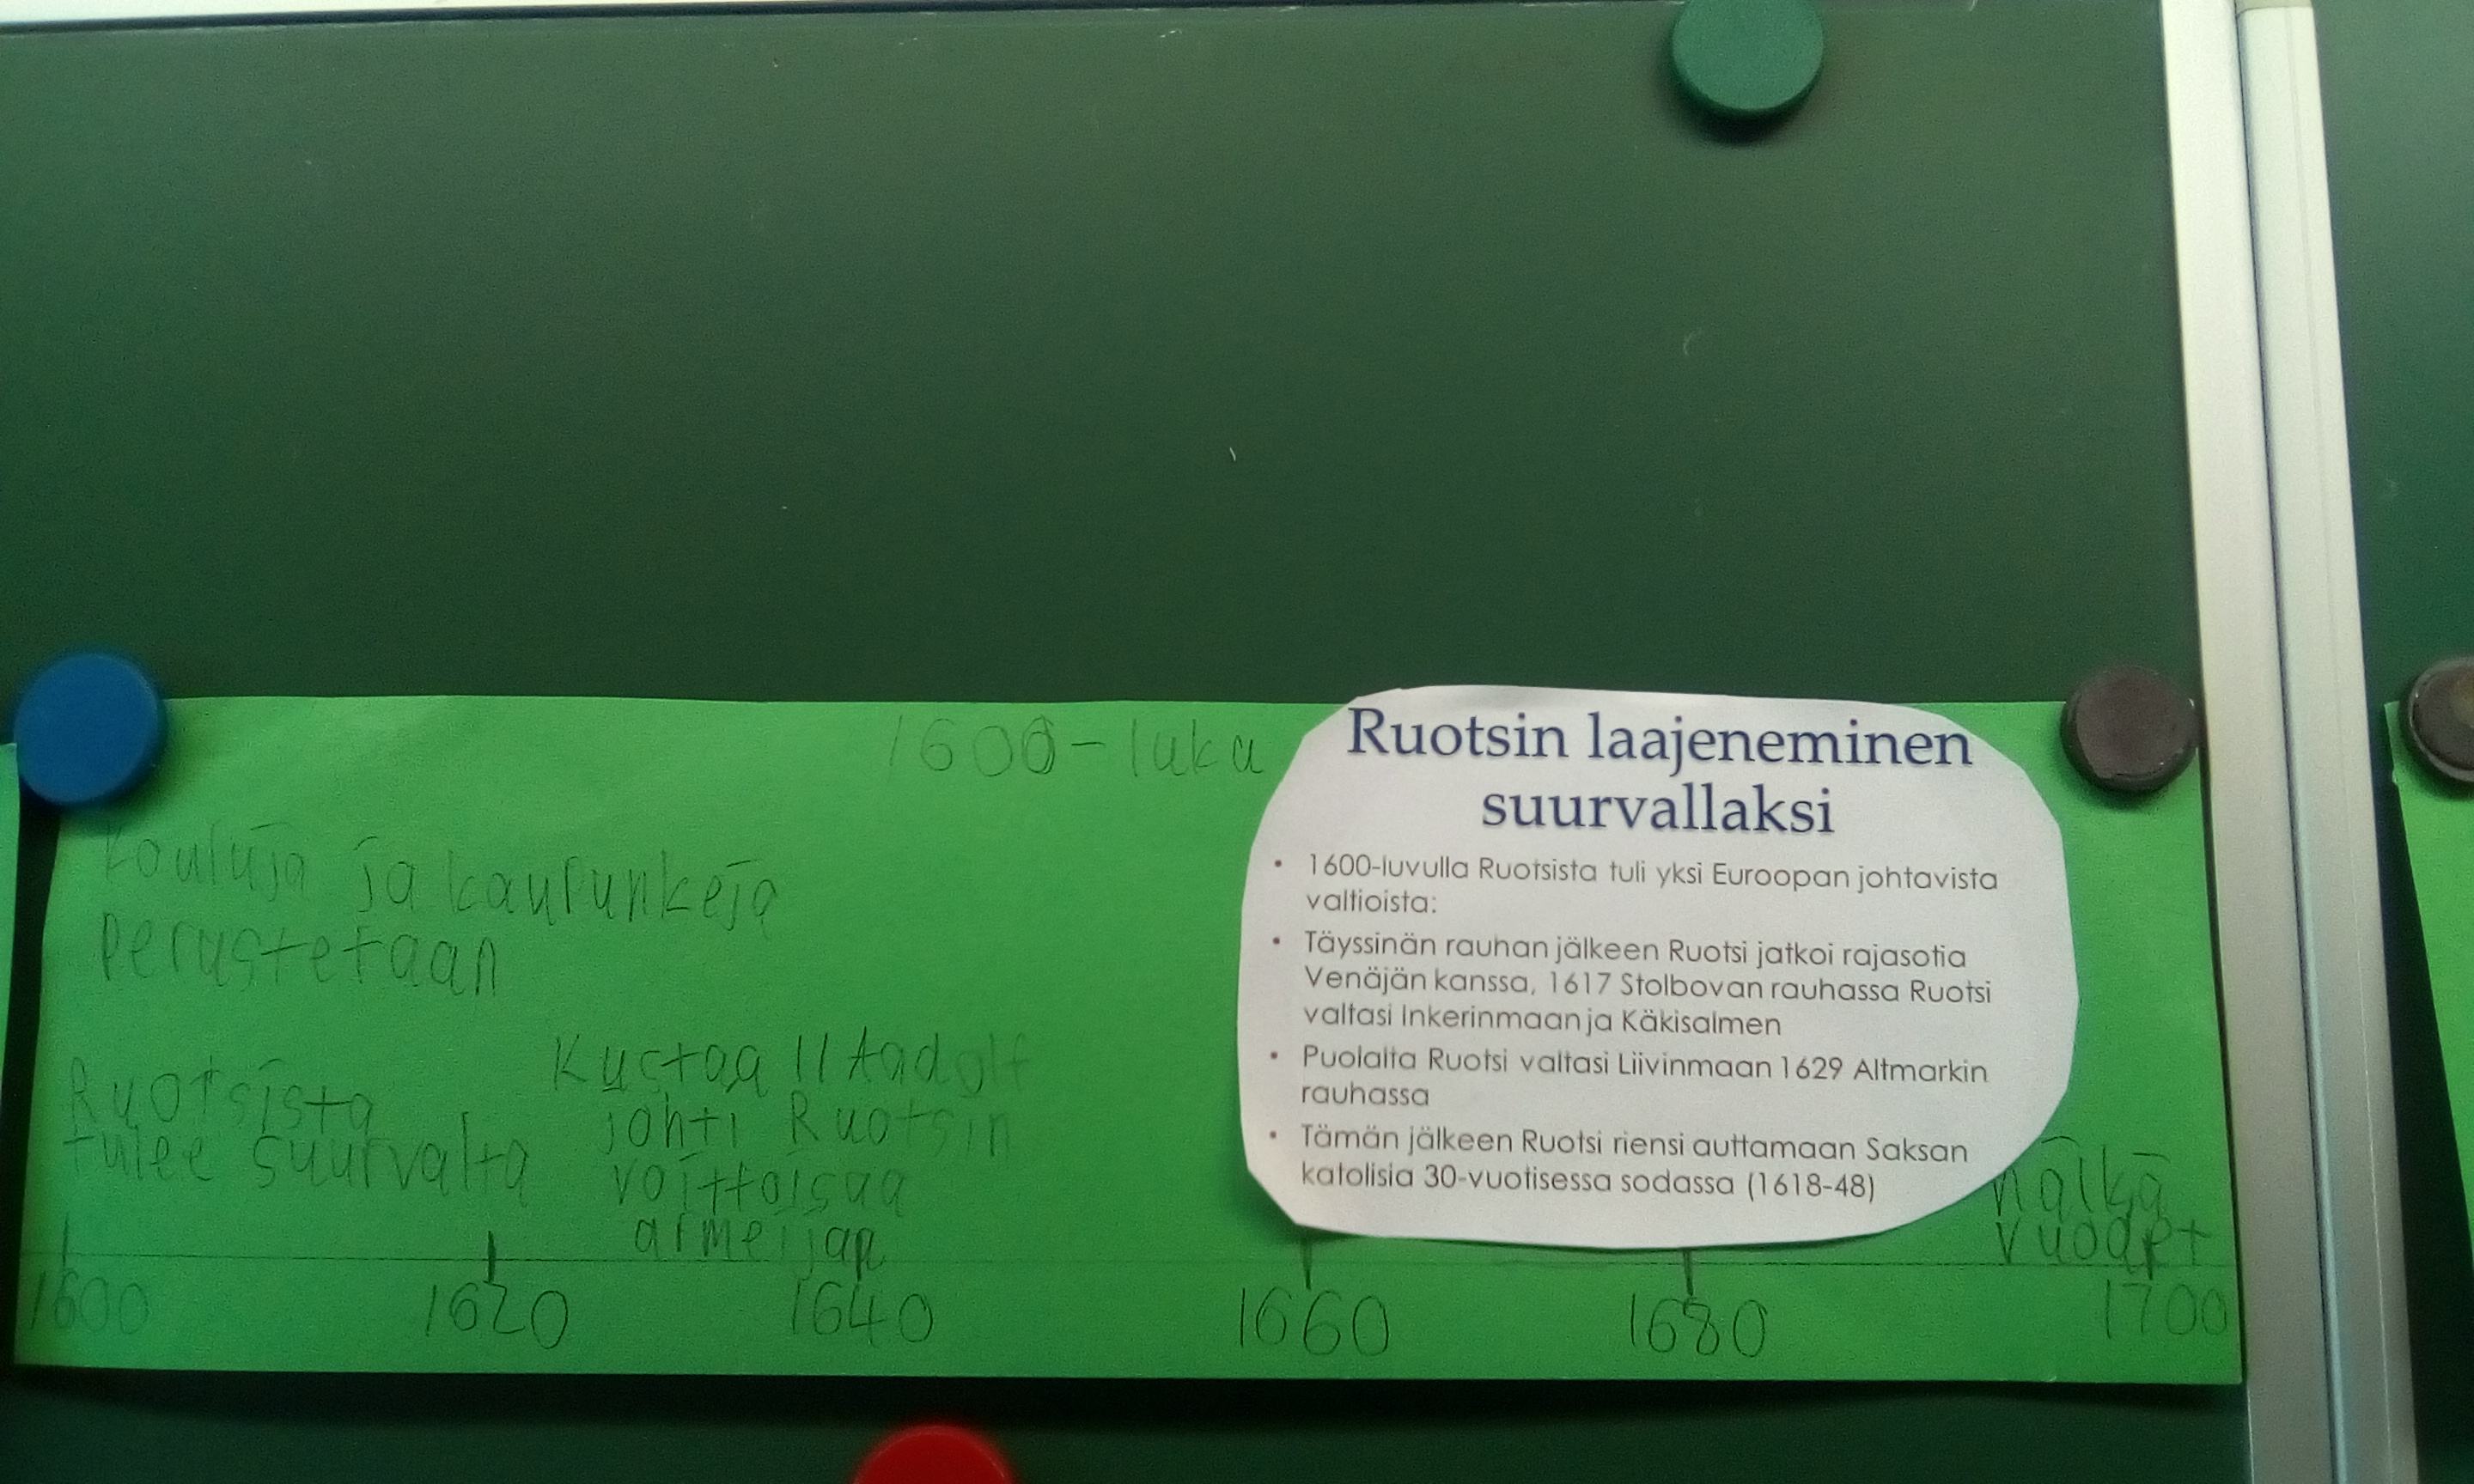 1600-luku
Kouluja ja kaupunkeja
perustetaan
Ruotsista
tulee suurvalta
Kustaa II Aadolf
johti Ruotsin
voittoisaa
armeijaa
Ruotsin laajeneminen
suurvallaksi
• 1600-luvulla Ruotsista tuli yksi Euroopan johtavista
valtioista:
• Täyssinän rauhan jälkeen Ruotsi jatkoi rajasotia
Venäjän kanssa, 1617 Stolbovan rauhassa Ruotsi
valtasi Inkerinmaan ja Käkisalmen
• Puolalta Ruotsi valtasi Liivinmaan 1629 Altmarkin
rauhassa
• Tämän jälkeen Ruotsi riensi auttamaan Saksan
katolisia 30-vuotisessa sodassa (1618-48)
nälkä
vuodet
1600 1620 1640 1660 1680 1700